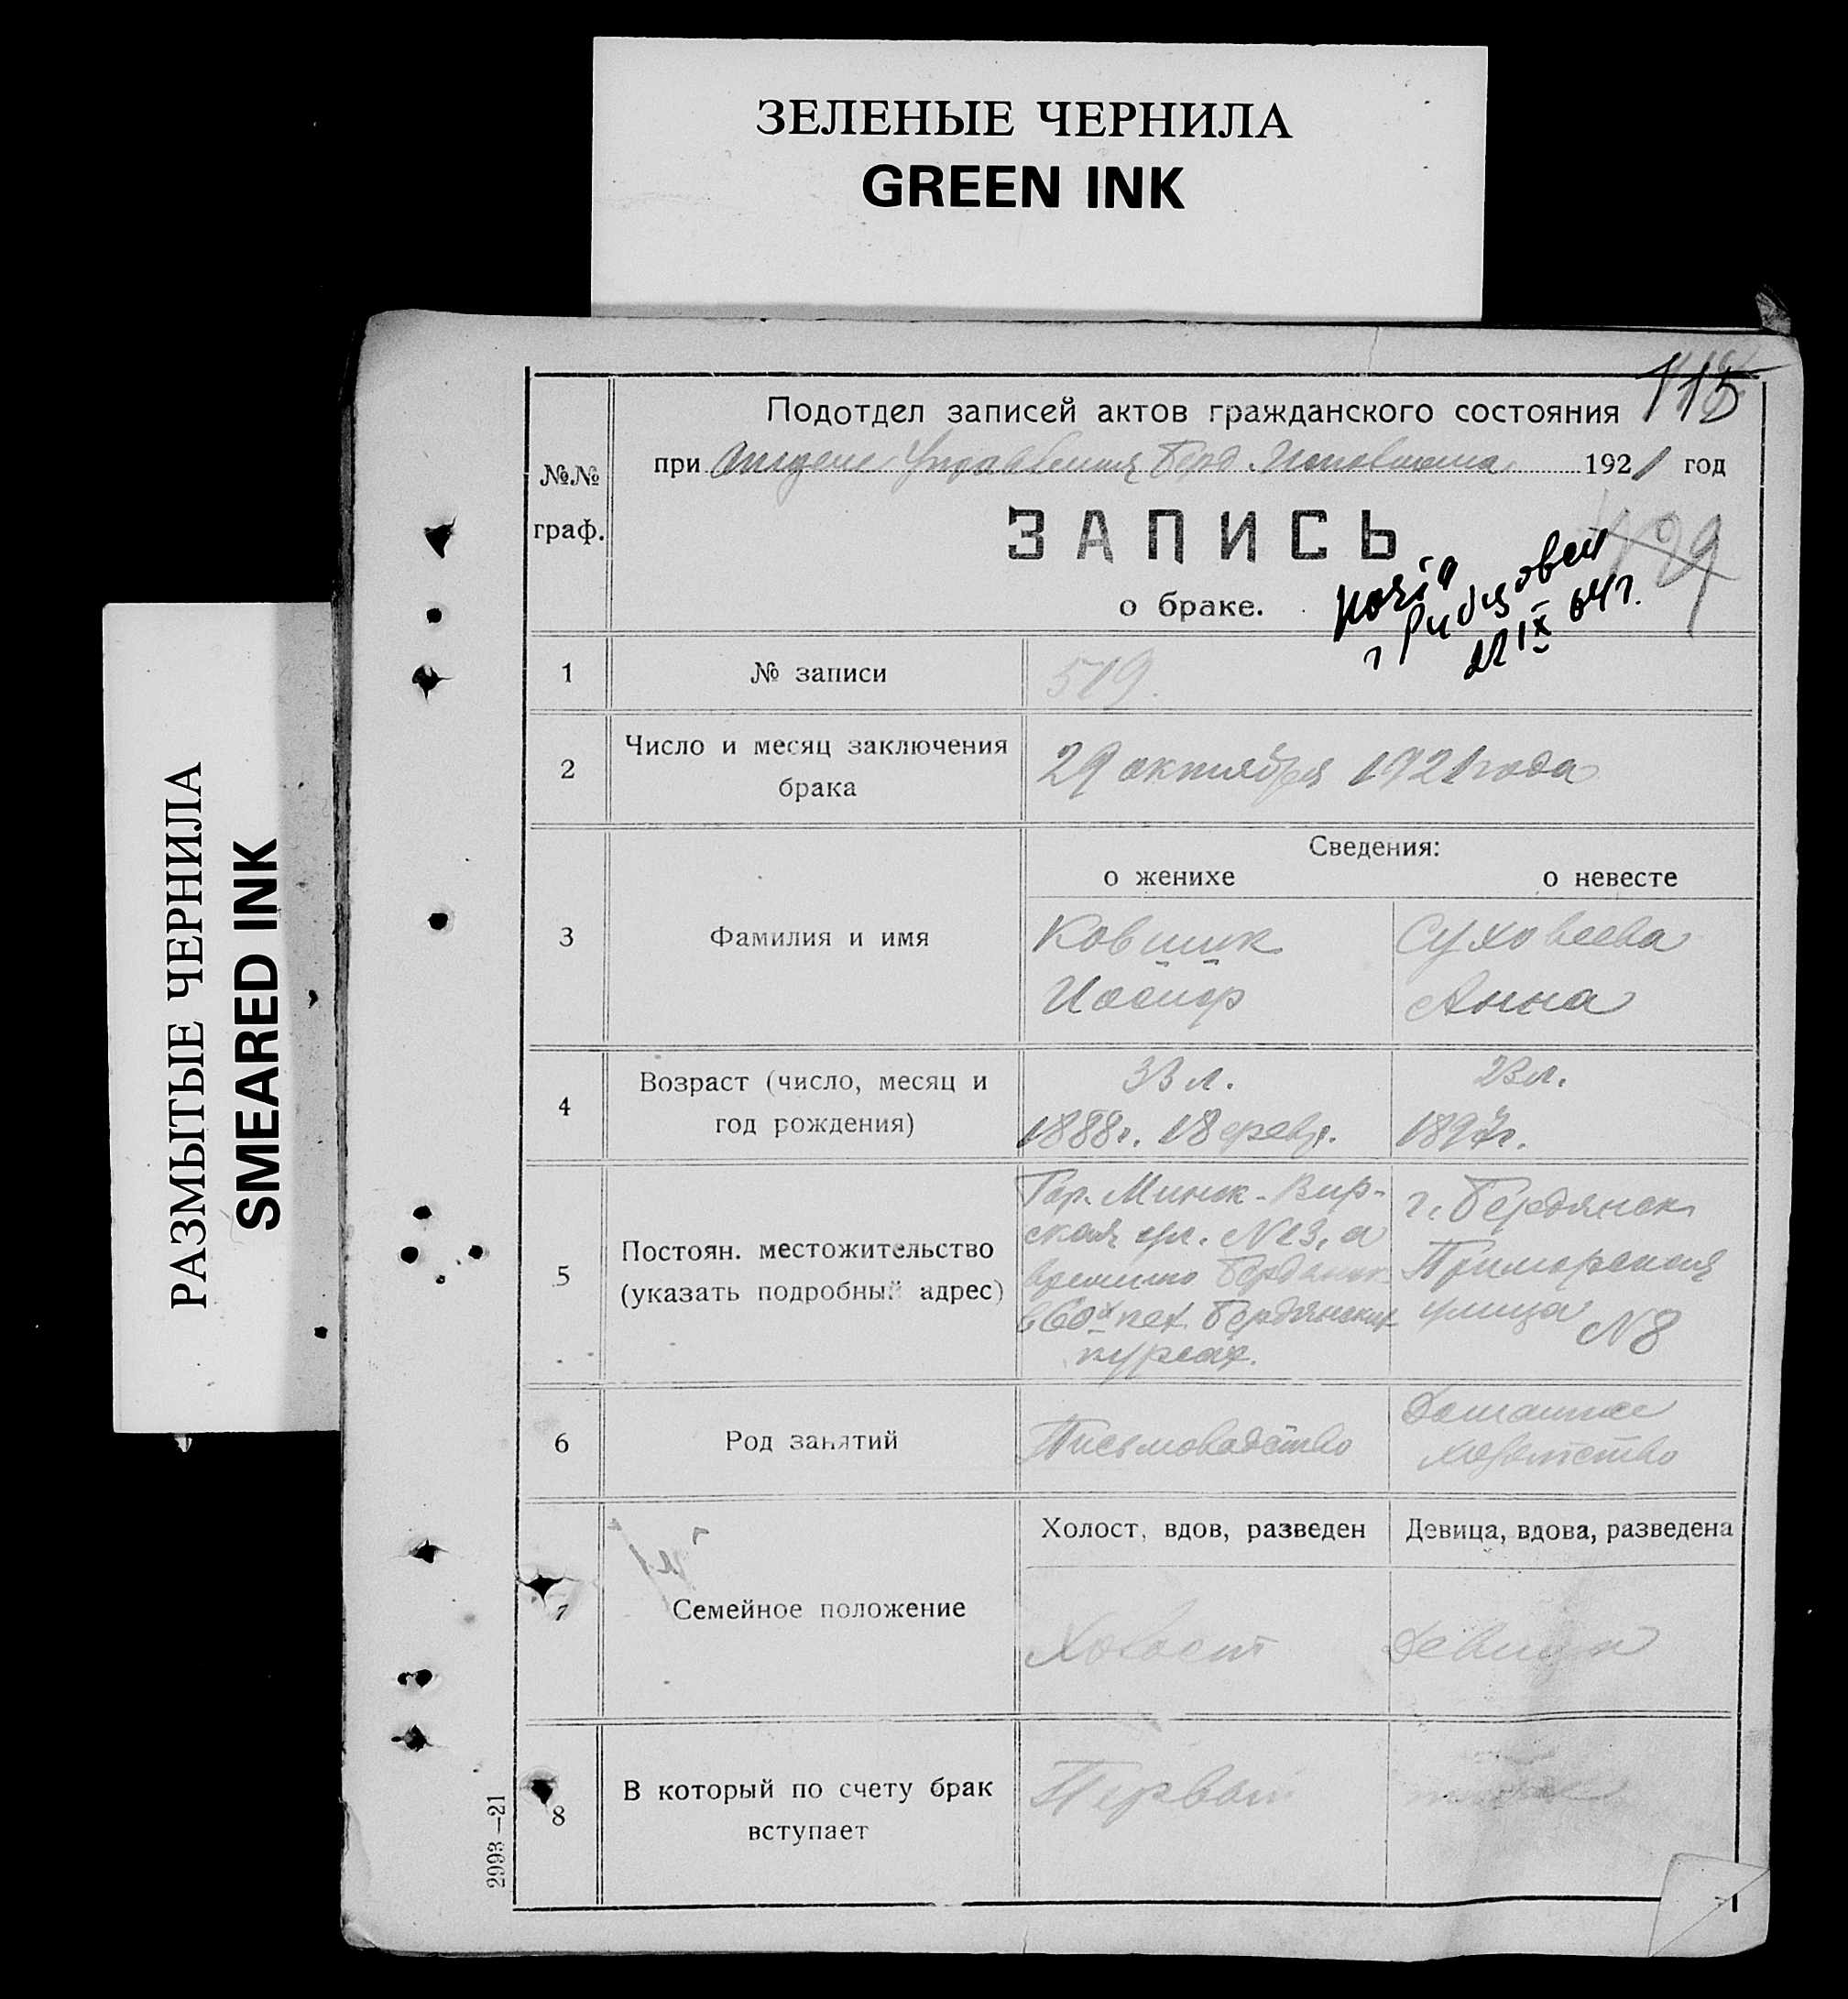 ЗЕЛЕНЫЕ ЧЕРНИЛА
GREEN INK
РАЗМЫТЫЕ ЧЕРНИЛА
SMEARED INK
115
Подотдел записей актов гражданского состояния
при Отделе Управления Берд. Исполкома 1921 год
№№
граф.
ЗАПИСЬ
о браке.
129
копія
22 IX 64 г.
1 № записи 519.
2 Число и месяц заключения
брака
29 октября 1921 года
Сведения:
о женихе о невесте
3 Фамилия и имя
Ковшик Суховеева
Иосиф Анна
4 Возраст (число, месяц и
год рождения)
33 л. 23 л.
1888г. 18 февр. 1897г.
5 Постоян. местожительство
(указать подробный адрес)
Гор. Минск-Вир-
ская ул. №13, а
временно Бердянск
в 60х пех. Бердянских
курсах.
г. Бердянск
Приморская
улица №8
6 Род занятий
Письмоводство
Домашнее
хозяйство
7 Семейное положение
Холост, вдов, разведен Девица, вдова, разведена
Холост Девица
8 В который по счету брак
вступает
Первый
2993—21